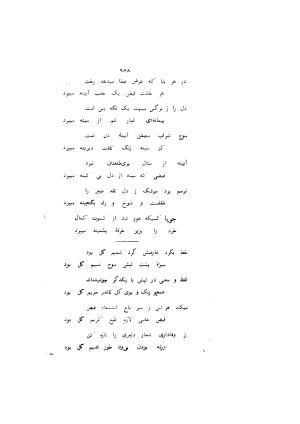 ۹۶۸
در هر بنا که عرض صفا میدهد رخت
هر خشت فیض یک حلب آیینه میبرد
دل را ز نرگس سیهت یک نگه بس است
پیمانه‌ای غبار غم از سینه میبرد
موج شراب صیقل آیینه دل است
کز سینه زنگ کلفت دیرینه میبرد
آیینه از مثال پری‌طلعتان نبرد
فیضی که سینه از دل بی کینه میبرد
ترسم برد سرشک ز دل نقد صبر را
طفلست و شوخ و راه بگنجینه میبرد
جویا کسیکه دور شد از کسوت کمال
خود را بزیر خرقهٔ پشمینه میبرد
خط بگرد عارضش گرد شمیم گل بود
سبزهٔ پشت لبش موج نسیم گل بود
لفظ و معنی در لبش با یکدگر جوشیده‌اند
همچو رنگ و بوی گل کاندر حریم گل بود
میکند هر کس ز سیر باغ استشمام فیض
فیض بخشی لازم طبع کریم گل بود
از وفاداری شعار دلبری را تازه کن
ورنه بودن بیوفا طور قدیم گل بود